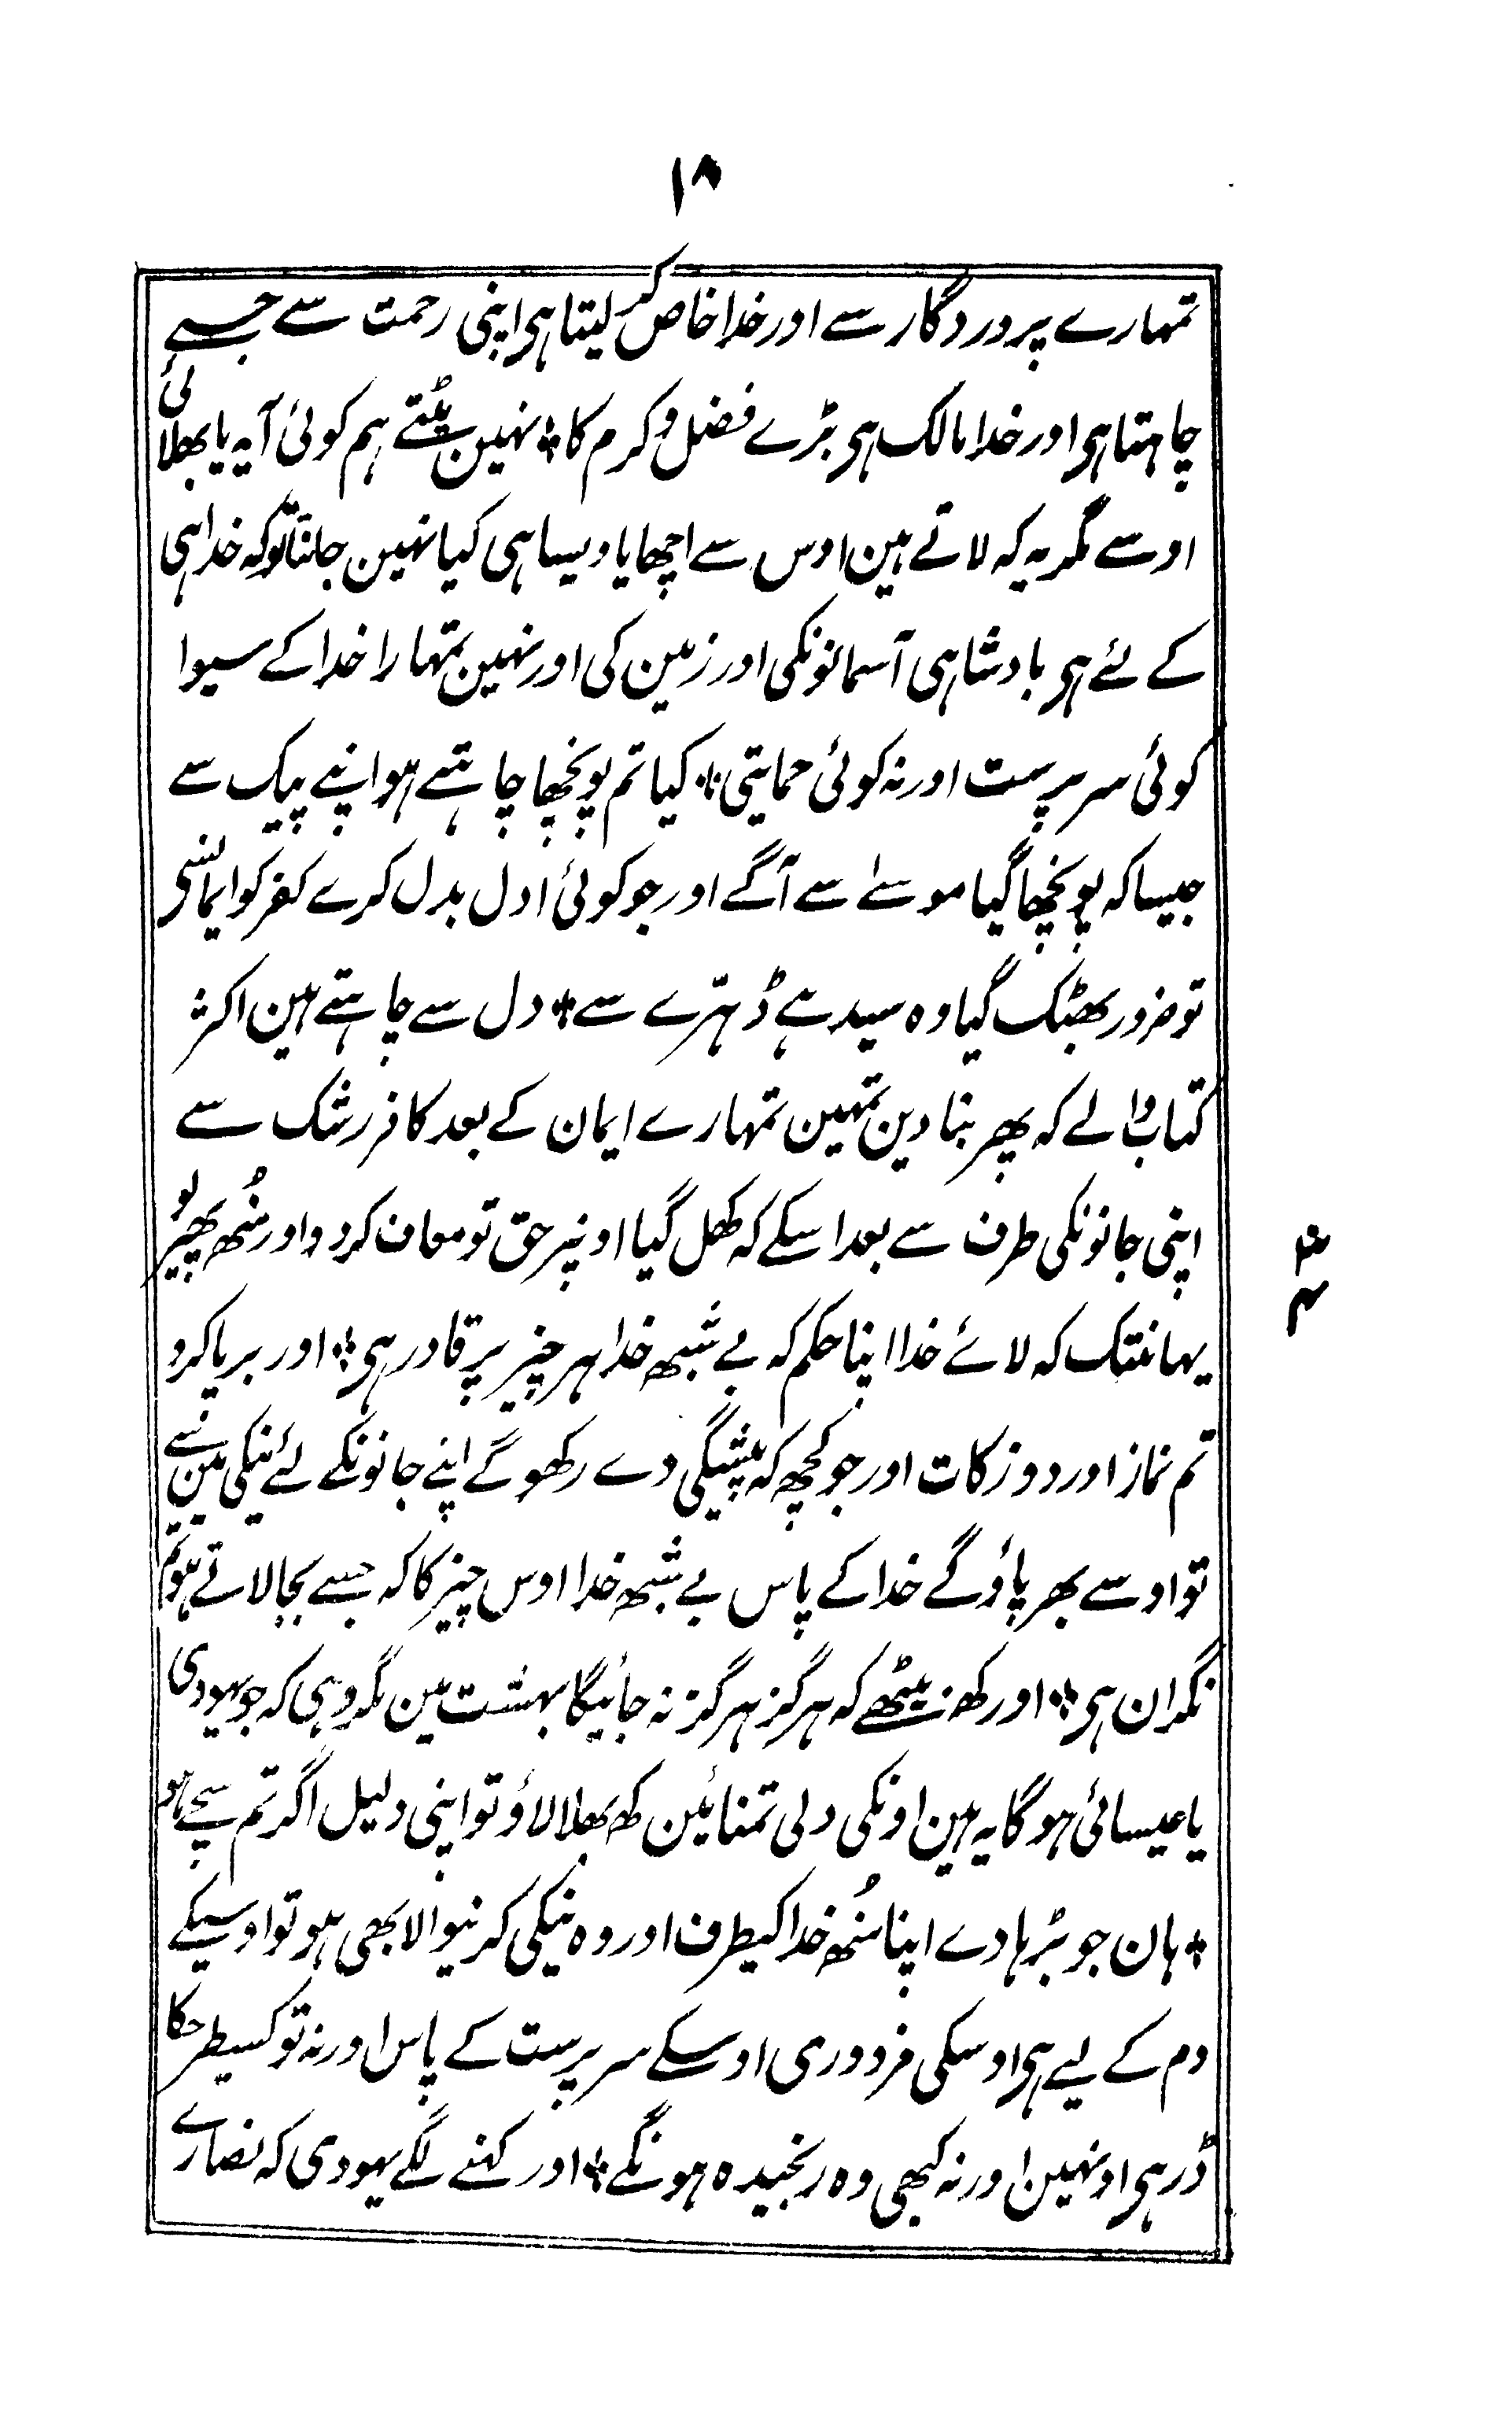 ۱۸
تمہارے پروردگار سے اور خدا خاص کر لیتا ہی اپنی رحمت سے جسے
چاہتا ہی اور خدا مالک ہی بڑے فضل و کرم کا ٭ نہین میٹتے ہم کوئی آیہ یا بھلائی
اوسے مگر یہ کہ لاتے ہین اوس سے اچھا یا ویسا ہی کیا نہین جانتا تو کہ خدا ہی
کے لئے ہی بادشاہی آسمانونکی اور زمین کی اور نہین تمہارا خدا کے سوا
کوئی سرپرست اور نہ کوئی حمایتی ٭ کیا تم پونچھا چاہتے ہو اپنے پیک سے
جیسا کہ پونچھا گیا موسےٰ سے آگے اور جو کوئی ادل بدل کرے کفر کو ایمانسے
تو ضرور بھٹک گیا وہ سیدہے ڈہرّے سے ٭ دل سے چاہتے ہین اکثر
کتاب والے کہ پھر بنا دین تمہین تمہارے ایمان کے بعد کافر رشک سے
اپنی جانونکی طرف سے بعد اسکے کہ کھل گیا اونپر حق تو معاف کردو اور مُنھ پھیر لو
یہانتک کہ لائے خدا اپنا حکم کہ بے شبھہ خدا ہر چیز پر قادر ہی ٭ اور برپا کرو
تم نماز اور دو زکات اور جو کچھ کہ پیشگی دے رکھو گے اپنے جانونکے لئے نیکی مین سے
تو اوسے بھر پاؤ گے خدا کے پاس بے شبھہ خدا اوس چیز کا کہ جسے بجا لاتے ہو تم
نگران ہی ٭ اور کھ بیٹھے کہ ہرگز ہرگز نہ جائیگا بہشت مین مگر وہی کہ جو یہودی
یا عیسائی ہوگا یہ ہین اونکی دلی تمنائین کھ بھلا لاؤ تو اپنی دلیل اگر تم سچے ہو
٭ ہان جو بڑہادے اپنا مُنھ خدا کیطرف اور وہ نیکی کرنیوالا بھی ہو تو اوسیکے
دم کے لیے ہی اوسکی مزدوری اوسکے سرپرست کے پاس اور نہ تو کسیطرحکا
ڈر ہی اونہین اور نہ کبھی وہ رنجیدہ ہونگے ٭ اور کہنے لگے یہودی کہ نصارے